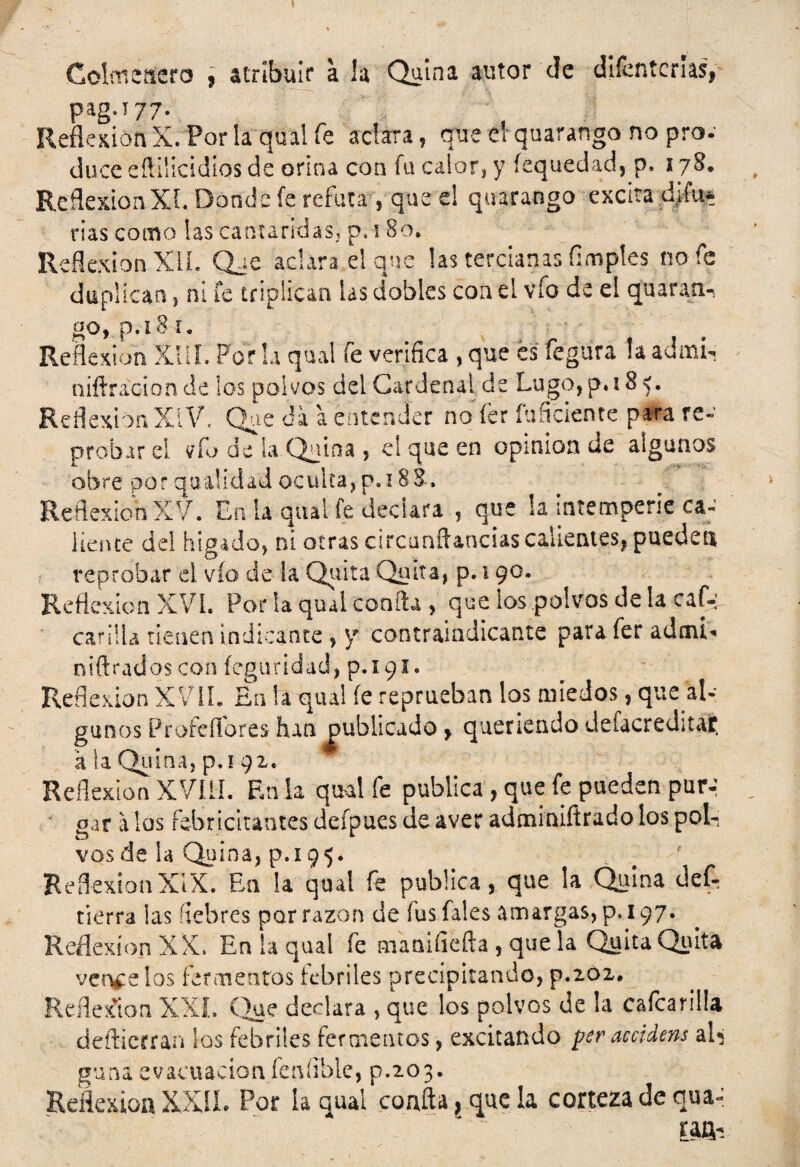 Colmenero , atribuir à la Quina autor de difenterias,
pag.177.
Reflexion X. Por la qual fe aclara, que el quarango no pro-
duce eftilicidios de orina con fu calor, y fequedad, p. 178.
Reflexion XI. Donde fe refuta , que el quarango excita difu-
rias como las cantaridas, p.180.
Reflexion XII. Que aclara el que las tercianas fimples no fe
duplican , ni fe triplican las dobles con el vfo de el quaran-
go, p.181.
Reflexion XIII. Por la qual fe verifica , que es fegura la admi-
niftracion de los polvos del Cardenal de Lugo, p.185.
Reflexion XIV. Que dà à entender no fer fuficiente para re-
probar el vfo de la Quina , el que en opinion de algunos
obre por qualidad oculta, p.188.
Reflexion XV. En la qual fe declara , que la intemperie ca-
liente del higado, ni otras circunftancias calientes, pueden
reprobar el vfo de la Quita Quita, p.190.
Reflexion XVI. Por la qual confta , que los polvos de la caf-
carilla tienen indicante , y contraindicante para fer admi-
niftrados con feguridad, p.191.
Reflexion XVII. En la qual fe reprueban los miedos , que al-
gunos Profeffores han publicado , queriendo defacreditar
à la Quina, p.192.
Reflexion XVIII. En la qual fe publica , que fe pueden pur-
gar à los febricitantes defpues de aver adminiftrado los pol-
vos de la Quina, p.195.
Reflexion XIX. En la qual fe publica , que la Quina def-
tierra las fiebres por razon de fus fales amargas, p.197.
Reflexion XX. En la qual fe manifiefta , que la Quita Quita
vence los fermentos febriles precipitando, p.202.
Reflexion XXI. Que declara , que los polvos de la cafcarilla
deftierran los febriles fermentos , excitando per accidens al-
guna evacuacion fenfible, p.203.
Reflexion XXII. Por la qual confta , que la corteza de qua-
ran-